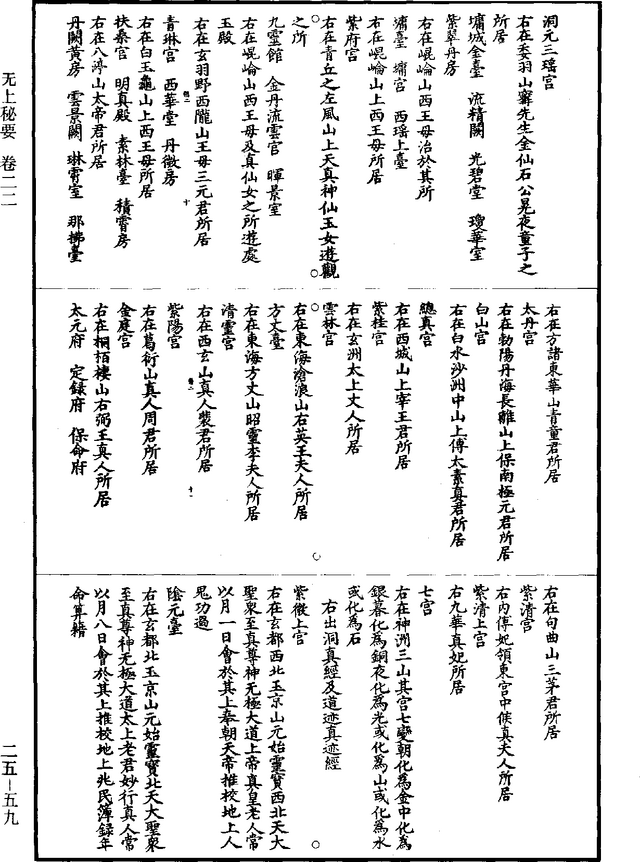 无上秘要 卷二二
二五－五九
洞元三瑶宮
右在委羽山寧先生金仙石公晃夜童子之
所居
墉城金臺 流精闕 光碧堂 瓊華室
紫翠丹房
右在崐崘山西王母治於其所
墉臺 墉宮 西瑶上臺
右在崐崘山上西王母所居
紫府宮
右在青丘之左風山上天真神仙玉女遊觀
之所
九靈館 金丹流雲宮 暉景室
右在崐崘山西王母及真仙女之所遊處
玉殿
右在玄羽野西隴山王母三元君所居
青琳宮 西華堂 丹微房
右在白玉龜山上西王母所居
扶桑宮 明真殿 素林臺 積霄房
右在八渟山太帝君所居
丹闕黃房 雲景闕 琳霄室 那拂臺
右在方諸東華山青童君所居
太丹宮
右在勃陽丹海長離山上保南極元君所居
白山宮
右在白水沙洲中山上傅太素真君所居
總真宮
右在西城山上宰王君所居
紫桂宮
右在玄洲太上丈人所居
雲林宮
右在東海滄浪山右英王夫人所居
方丈臺
右在東海方丈山昭靈李夫人所居
清靈宮
右在西玄山真人裴君所居
紫陽宮
右在葛衍山真人周君所居
金庭宮
右在桐栢棲山右弼王真人所居
太元府 定録府 保命府
右在句曲山三茅君所居
紫清宮
右內傅妃領東宮中候真夫人所居
紫清上宮
右九華真妃所居
七宮
右在神洲三山其宮七變朝化為金中化為
銀暮化為銅夜化為光或化為山或化為水
或化為石
右出洞真經及道迹真迹經
紫微上宮
右在玄都西北玉京山元始靈寶西北天大
聖衆至真尊神无極大道上帝真皇老人常
以月一日會於其上奉朝天帝推校地上人
鬼功過
陰元臺
右在玄都北玉京山元始靈寶北天大聖衆
至真尊神无極大道太上老君妙行真人常
以月八日會於其上推校地上兆民簿録年
命算籍